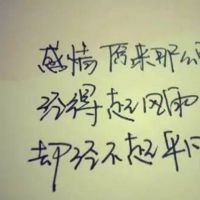 感情原来那么
经得起风雨
却经不起平